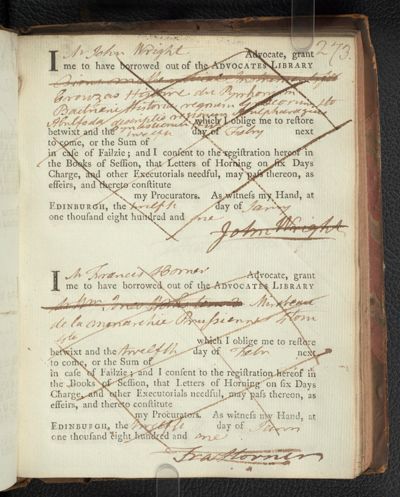 273.
I Mr John Wright Advocate, grant
me to have borrowed out of the ADVOCATES LIBRARY
Crouzas du Pyrrhonisme
Historia regnum
which I oblige me to restore
betwixt and the day of Febry next
to come, or the Sum of
in case of Failzie; and I consent to the registration hereof in
the Books of Session, that Letters of Horning on six Days
Charge, and other Executorials needful, may pass thereon, as
effeirs, and thereto constitute
my Procurators. As witness my Hand, at
EDINBURGH, the twelfth day of Janry
one thousand eight hundred and one
John Wright
I Mr Francis Horner Advocate, grant
me to have borrowed out of the ADVOCATES LIBRARY
Mirabeau
de la monarchie Prussienne Tom
which I oblige me to restore
betwixt and the twelfth day of Febr next
to come, or the Sum of
in case of Failzie; and I consent to the registration hereof in
the Books of Session, that Letters of Horning on six Days
Charge, and other Executorials needful, may pass thereon, as
effeirs, and thereto constitute
my Procurators. As witness my Hand, at
EDINBURGH, the twelfth day of Janry
one thousand eight hundred and one
Fra Horner